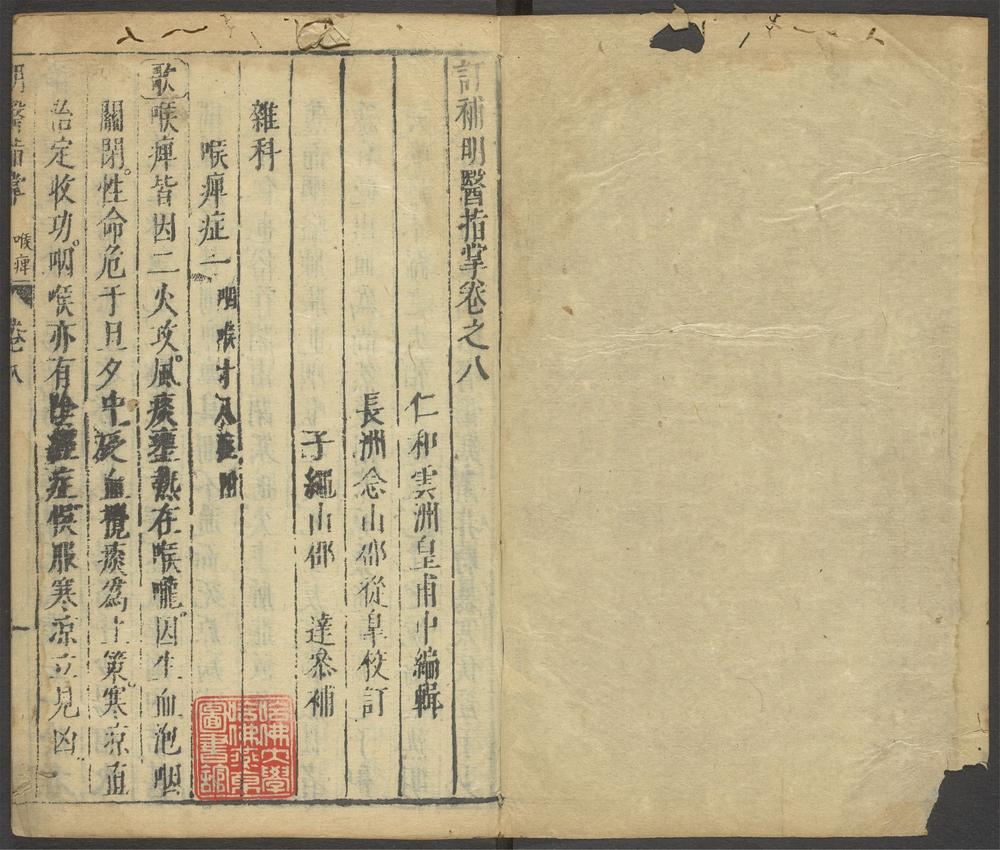 訂補明醫指掌卷之八
仁和雲洲皇甫中編輯
長洲念山邵從皋校訂
子繩山邵 達參補
雜科
喉痺症一
咽喉十八症
歌
喉痺皆因二火攻。風痰壅熱在喉嚨。因生血泡咽
關閉。性命危于旦夕中。砭血攪痰為上策。寒凉直
治定收功。咽喉亦有陰經症。悞服寒凉立見凶
明醫指掌
喉痺
卷八
一
哈佛大學
哈佛燕京
圖書館